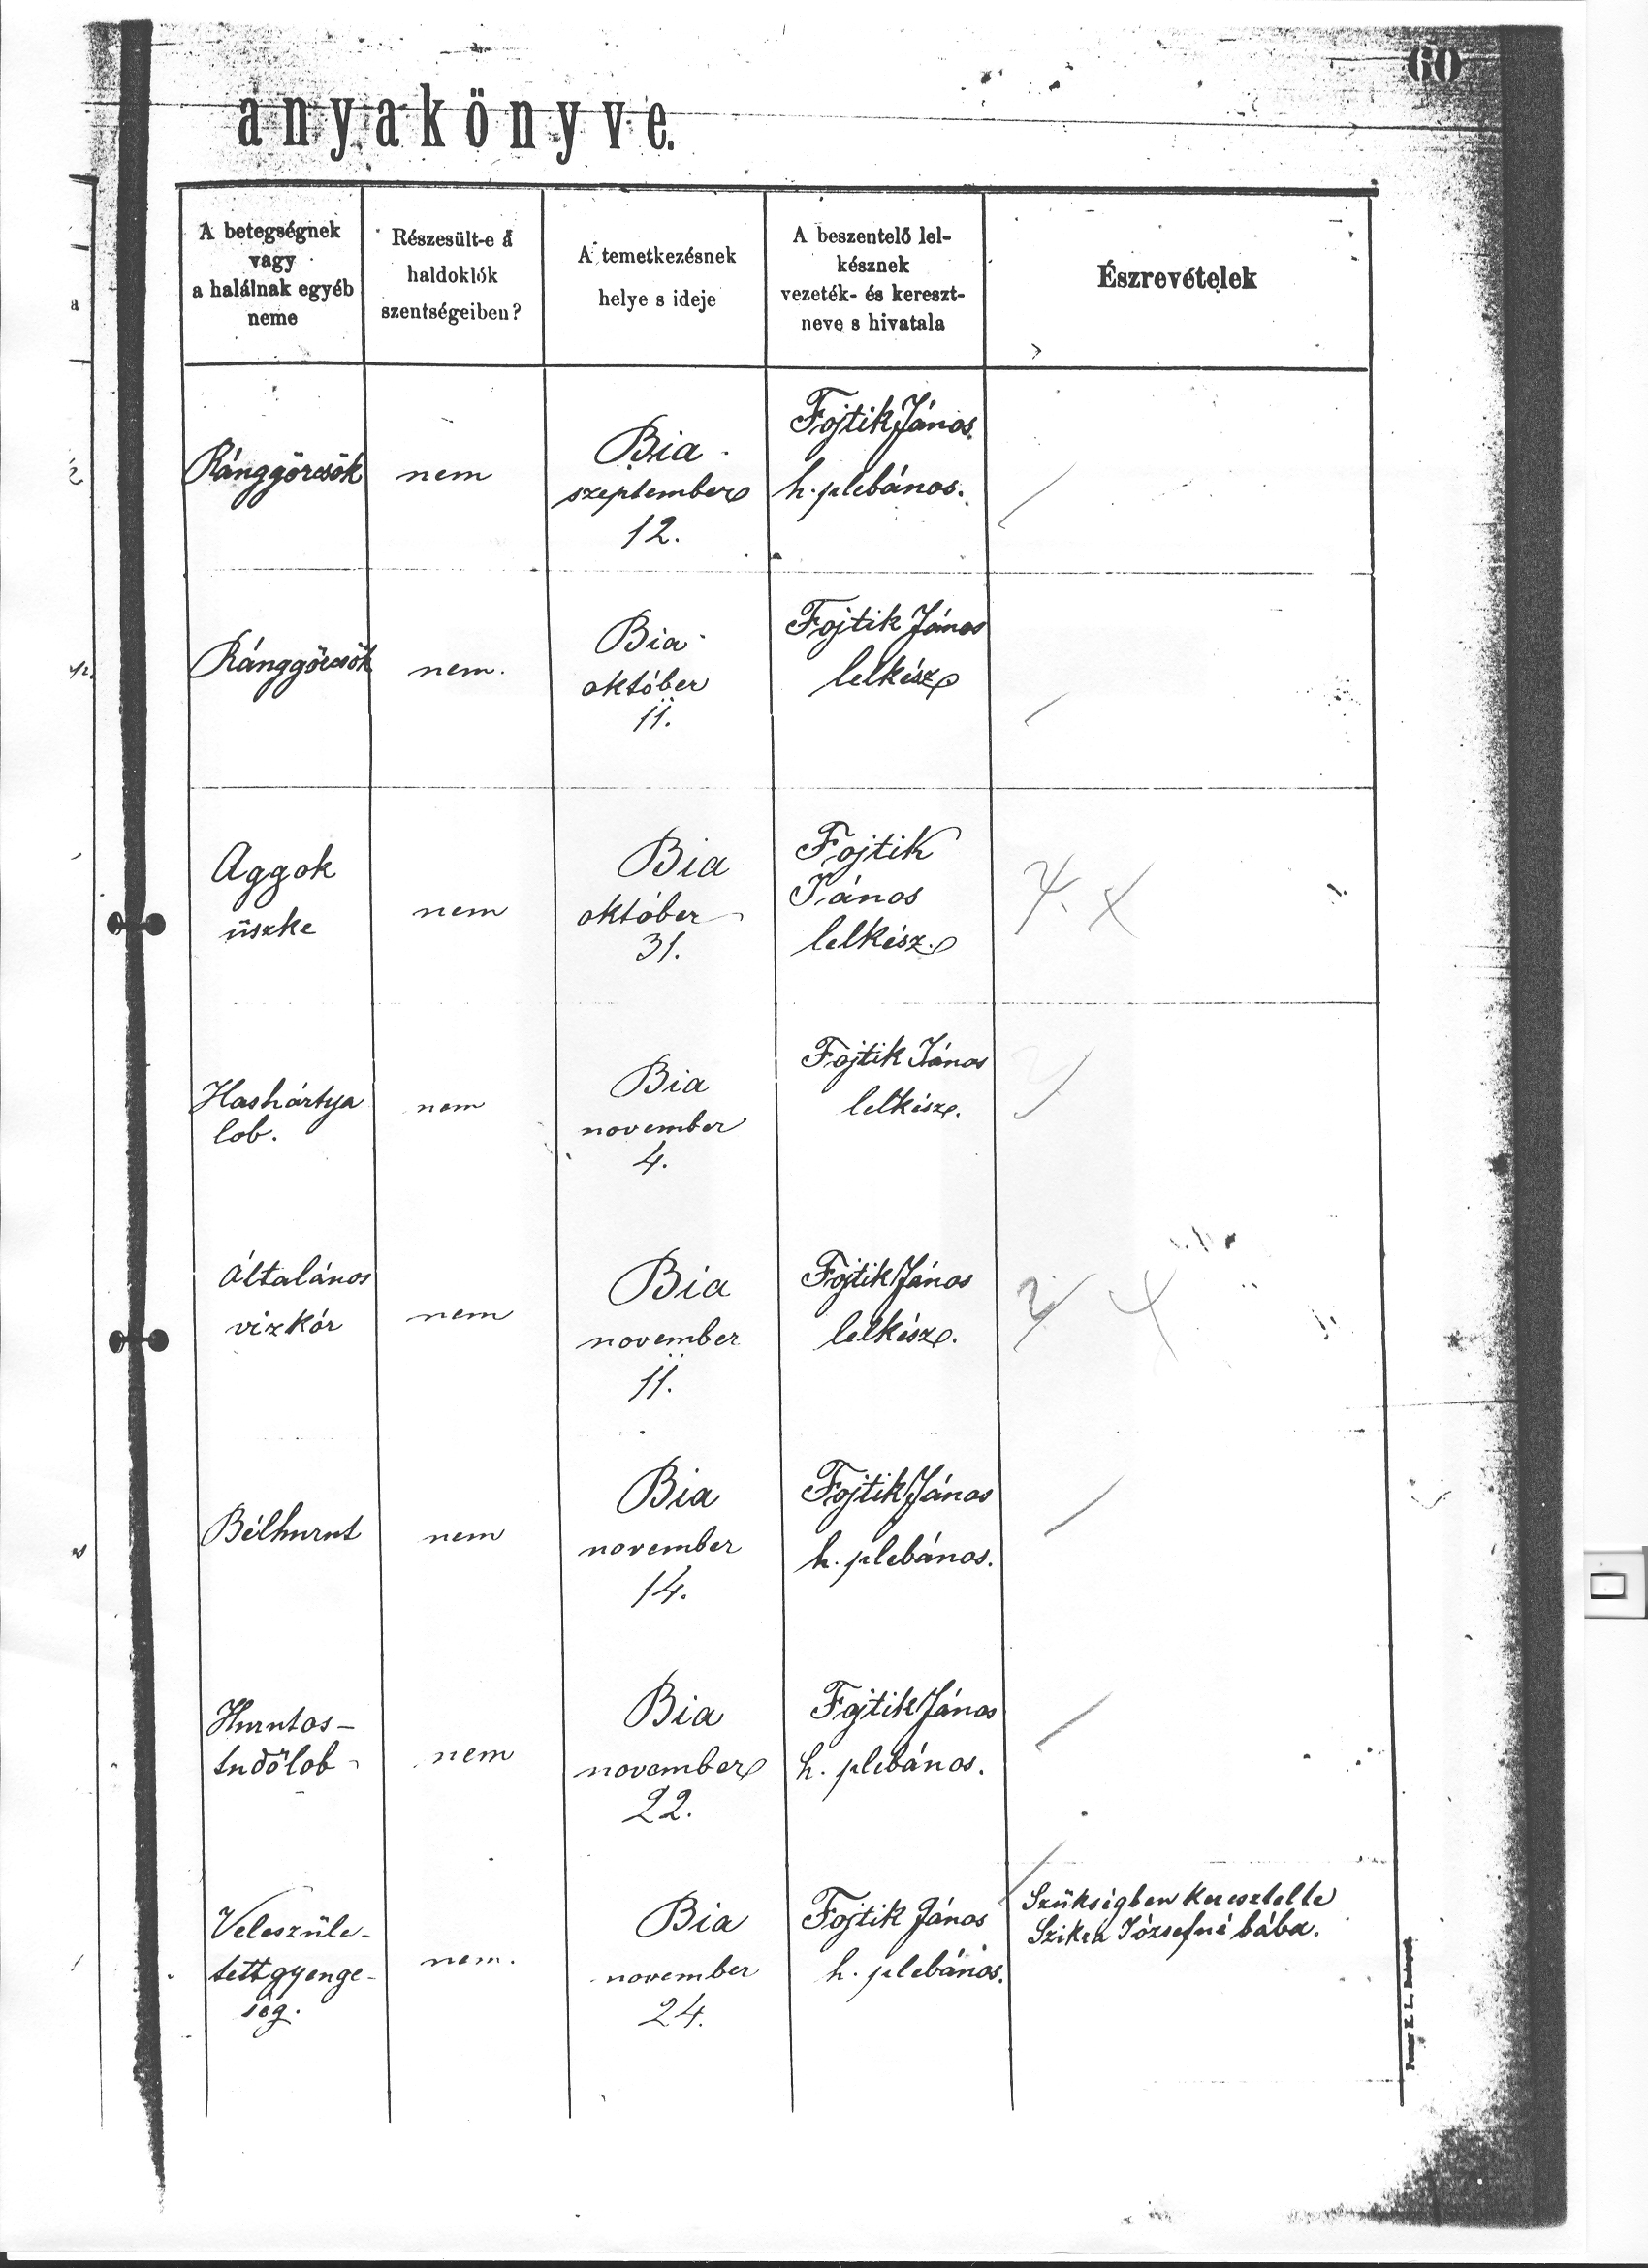 60
anyakönyve.
A betegségnek
vagy
a halálnak egyéb
neme
Részesült-e a
haldoklók
szentségeiben?
A temetkezésnek
helye s ideje
A beszentelő lel-
késznek
vezeték- és kereszt-
neve s hivatala
Észrevételek
Ránggörcsök
nem
Bia
szeptember
12.
Fojtik János
h. plebános.
Ránggörcsök
nem.
Bia
október
11.
Fojtik János
lelkész
Aggok
üszke
nem
Bia
október
31.
Fojtik
János
lelkész.
Hashártya
lob.
nem
Bia
november
4.
Fojtik János
lelkész.
Általános
vizkór
nem
Bia
november
11.
Fojtik János
lelkész.
Bélhurut
nem
Bia
november
14.
Fojtik János
h. plebános.
Hurutos-
tudőlob
nem
Bia
november
22.
Fojtik János
h. plebános.
Veleszüle-
tett gyenge-
ség.
nem.
Bia
november
24.
Fojtik János
h. plebános.
Szükségben keresztelte
Józsefné bába.